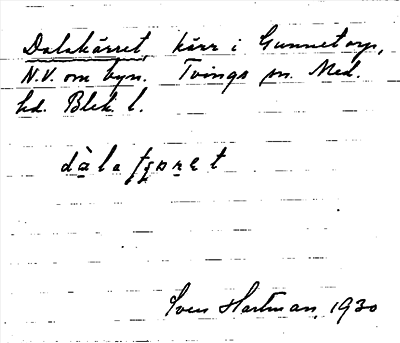 Dalakärret, kärr i Gunnetorp,
N.V. om byn. Tvings sn. Med.
hd. Blek. l.
Sven Hartman, 1930